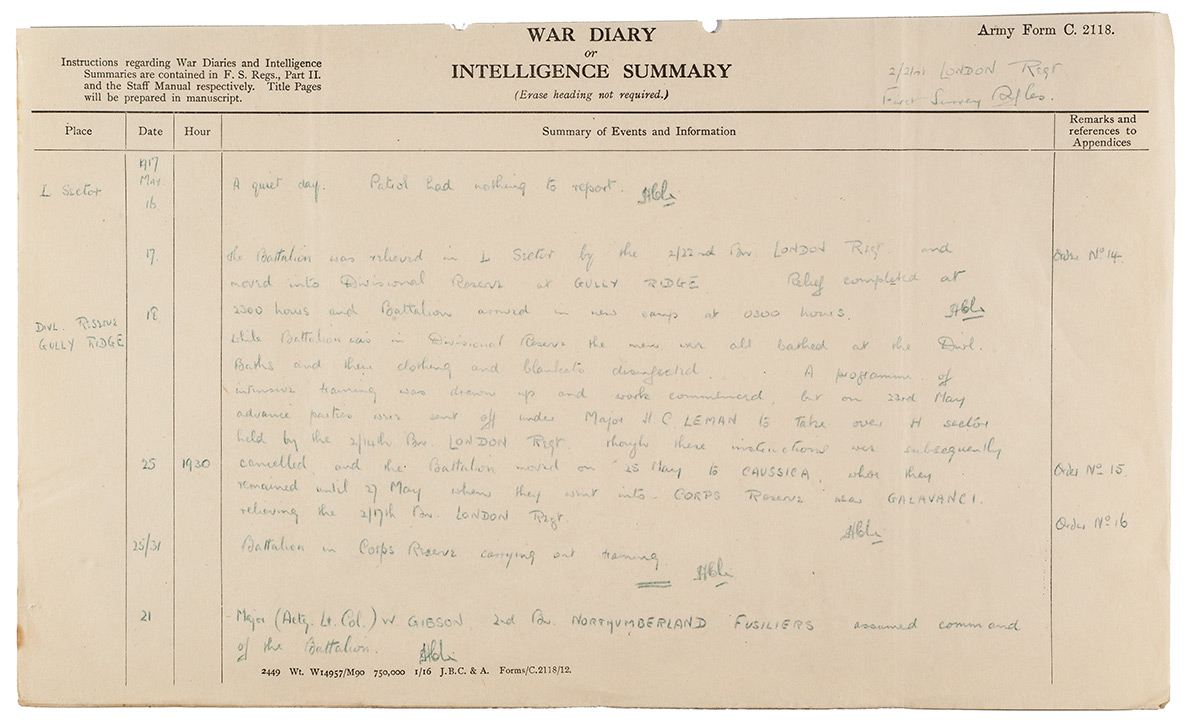 WAR DIARY
or
INTELLIGENCE SUMMARY
(Erase heading not required.)
Army Form C. 2118.
Instructions regarding War Diaries and Intelligence
Summaries are contained in F. S. Regs., Part II.
and the Staff Manual respectively. Title Pages
will be prepared in manuscript.
2/21st LONDON Regt
First Surrey Rifles.
Place Date Hour Summary of Events and Information Remarks and references to Appendices
1917
MAY
L Sector 16 A quiet day. Patrol had nothing to report.
17. The Battalion was relieved in L Sector by the 2/22nd Bn. LONDON Regt. and Order No 14.
moved into Divisional Reserve at GULLY RIDGE. Relief completed at
18 2300 hours and Battalion arrived in new camp at 0300 hours.
DIVL. RESERVE
GULLY RIDGE
While Battalion was in Divisional Reserve the men were all bathed at the Divl.
Baths and their clothing and blankets disinfected. A programme of
intensive training was drawn up and work commenced, but on 23rd May
advance parties were sent off under Major H.C. LEMAN to take over H sector
held by the 2/14th Bn. LONDON Regt. though these instructions were subsequently
25 1930 cancelled, and the Battalion moved on 25 May to CAUSSICA, where they Order No 15.
remained until 27 May when they went into CORPS Reserve near GALAVANCI.
relieving the 2/17th Bn. LONDON Regt. Order No 16
25/31 Battalion in Corps Reserve carrying out training
21 Major (Actg. Lt. Col.) W GIBSON, 2nd Bn. NORTHUMBERLAND FUSILIERS assumed command
of the Battalion.
2449 Wt. W14957/M90 750,000 1/16 J.B.C. & A. Forms/C.2118/12.